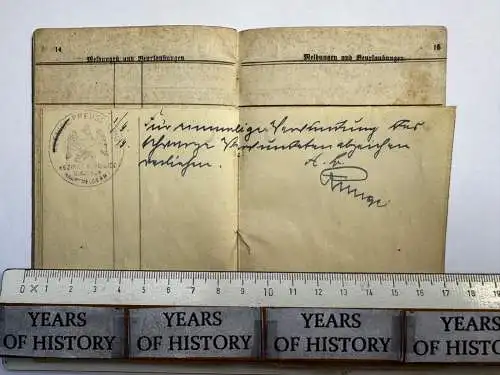 14
Meldungen und Beurlaubungen
15
Meldungen und Beurlaubungen
PREUSS
Für einmalige Verwundung das
schwarze Verwundetenabzeichen
verliehen.
0 1 2 3 4 5 6 7 8 9 10 11 12 13 14 15 16 17 18 19
YEARS OF HISTORY
YEARS OF HISTORY
YEARS OF HISTORY
YEARS OF HISTORY